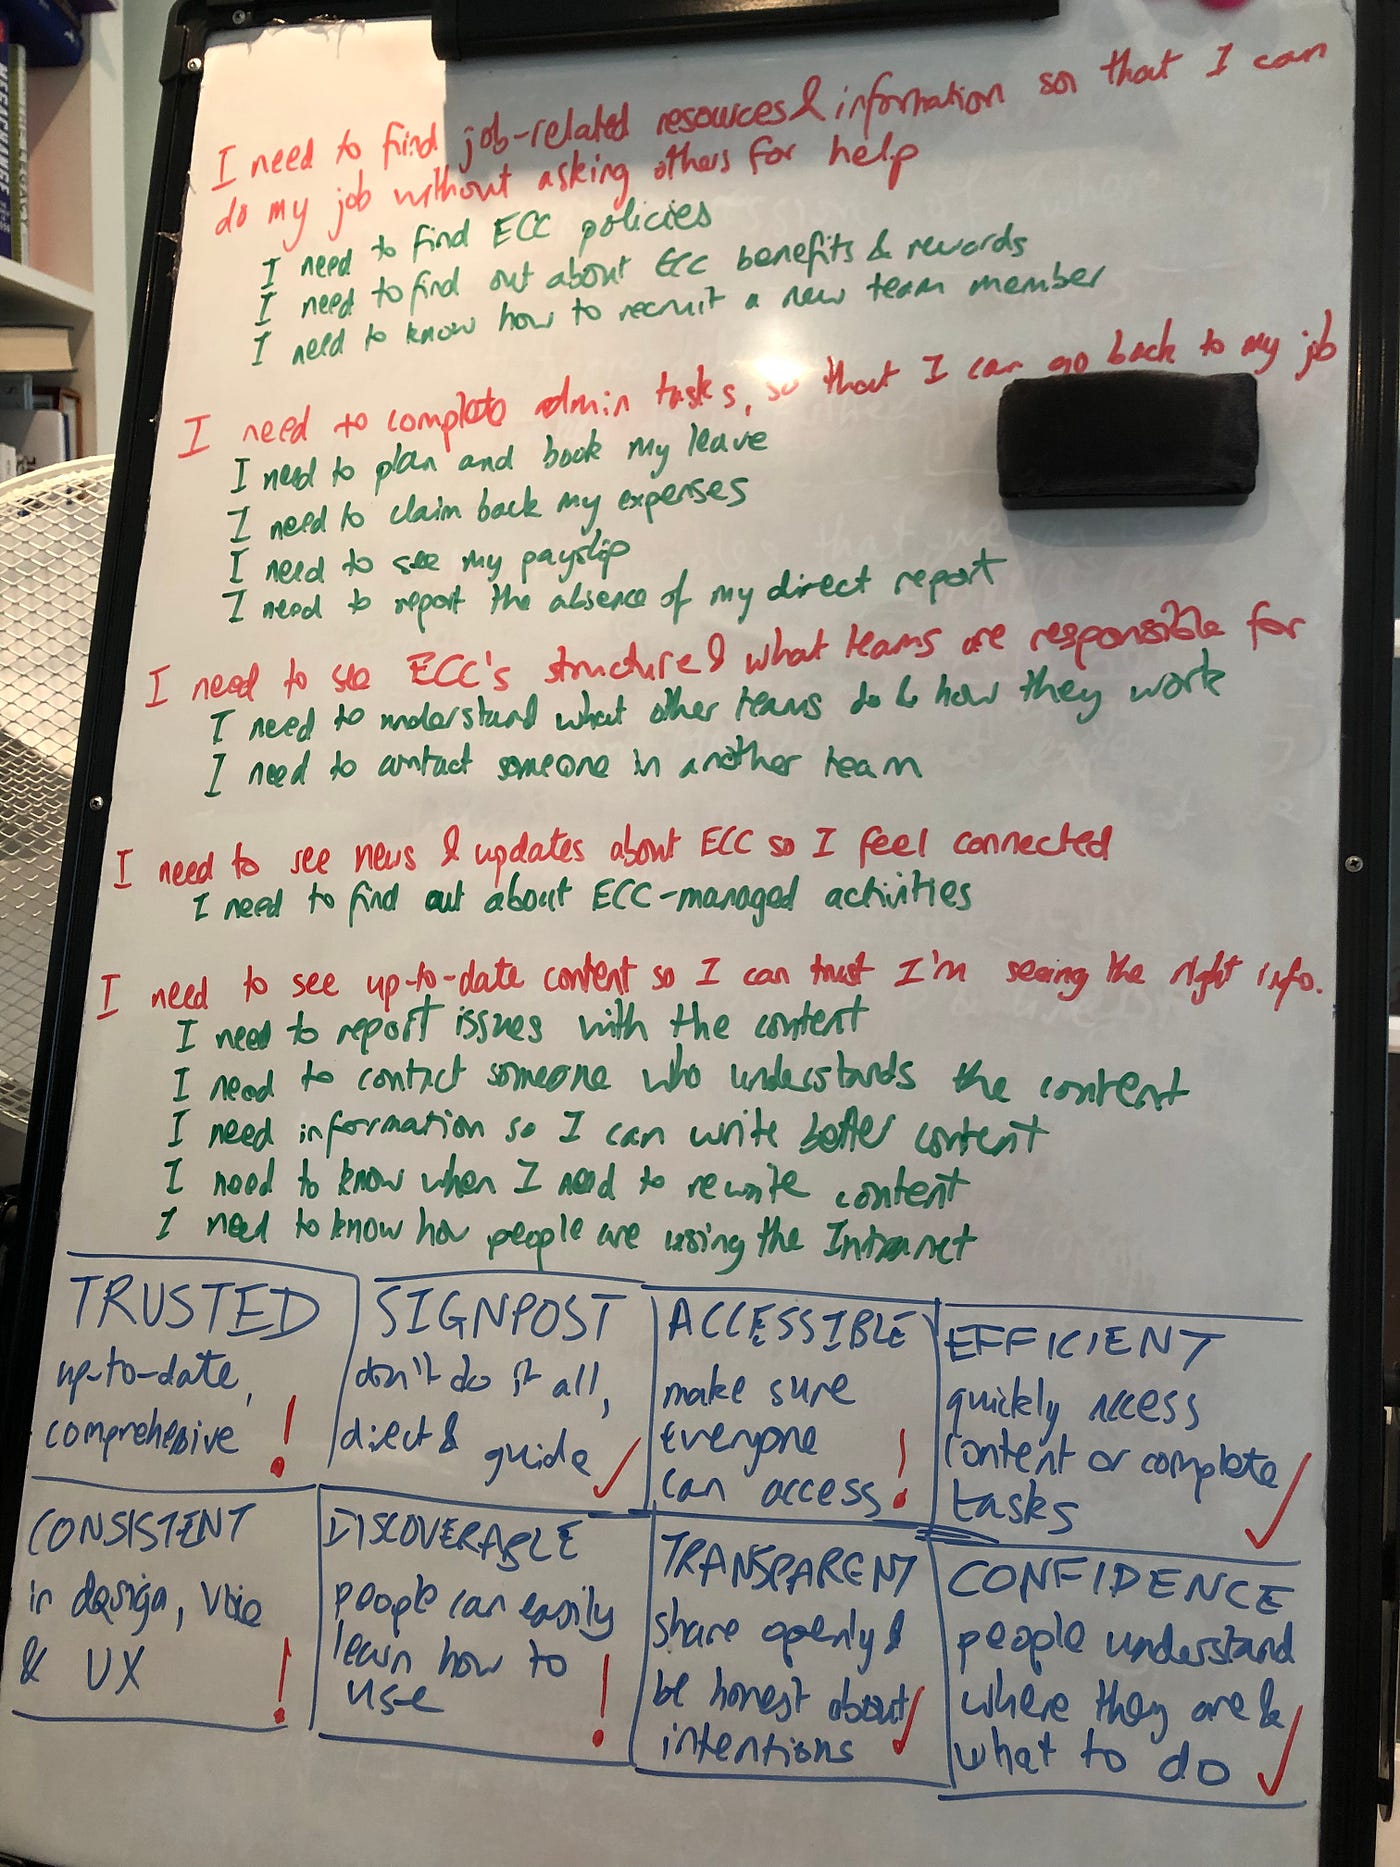 I need to find job-related resources & information so that I can
do my job without asking others for help
I need to find ECC policies
I need to find out about ECC benefits & rewards
I need to know how to recruit a new team member
I need to complete admin tasks, so that I can go back to my job
I need to plan and book my leave
I need to claim back my expenses
I need to see my payslip
I need to report the absence of my direct report
I need to see ECC's structure & what teams are responsible for
I need to understand what other teams do & how they work
I need to contact someone in another team
I need to see news & updates about ECC so I feel connected
I need to find out about ECC-managed activities
I need to see up-to-date content so I can trust I'm seeing the right info.
I need to report issues with the content
I need to contact someone who understands the content
I need information so I can write better content
I need to know when I need to rewrite content
I need to know how people are using the Intranet
TRUSTED
up-to-date,
comprehensive !
SIGNPOST
don't do it all,
direct &
guide ✓
ACCESSIBLE
make sure
everyone
can access !
EFFICIENT
quickly access
content or complete
tasks ✓
CONSISTENT
in design, voice
& UX !
DISCOVERABLE
people can easily
learn how to
use !
TRANSPARENT
share openly &
be honest about
intentions ✓
CONFIDENCE
people understand
where they are &
what to do ✓